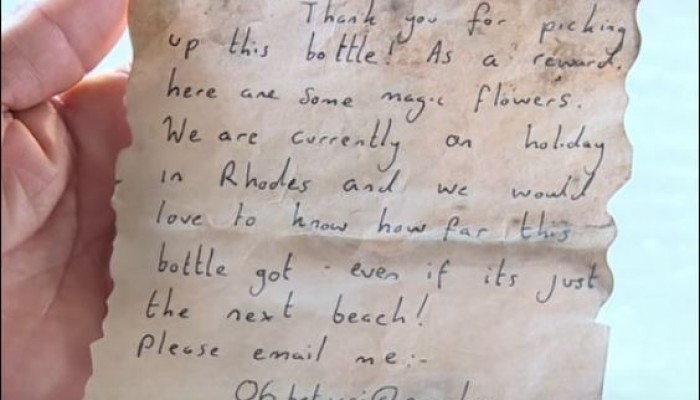 Thank you for picking
up this bottle! As a reward,
here are some magic flowers.
We are currently on holiday
in Rhodes and we would
love to know how far this
bottle got - even if its just
the next beach!
Please email me:-